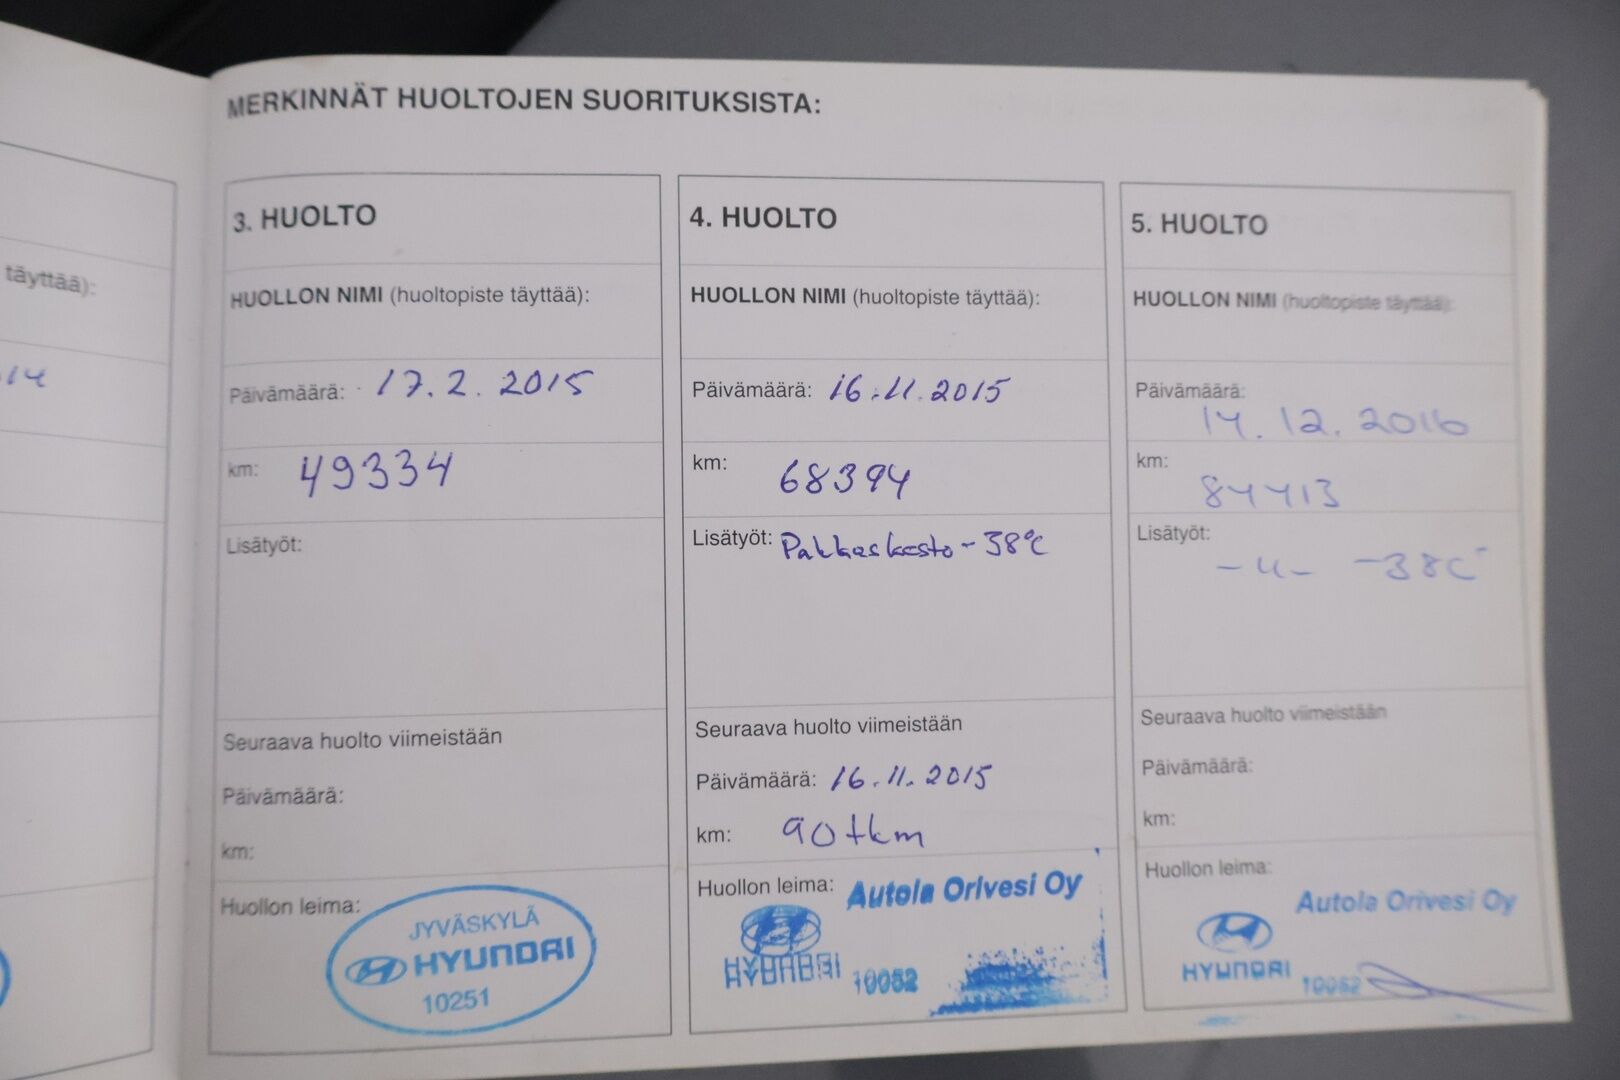 MERKINNÄT HUOLTOJEN SUORITUKSISTA:
täyttää):
14
3. HUOLTO
HUOLLON NIMI (huoltopiste täyttää):
Päivämäärä: 17.2.2015
km: 49334
Lisätyöt:
Seuraava huolto viimeistään
Päivämäärä:
km:
Huollon leima:
JYVÄSKYLÄ
HYUNDAI
10251
4. HUOLTO
HUOLLON NIMI (huoltopiste täyttää):
Päivämäärä: 16.11.2015
km: 68394
Lisätyöt: Pakkaskesto -38°C
Seuraava huolto viimeistään
Päivämäärä: 16.11.2015
km: 90 tkm
Huollon leima: Autola Orivesi Oy
HYUNDAI 10052
5. HUOLTO
HUOLLON NIMI (huoltopiste täyttää):
Päivämäärä:
14.12.2016
km:
84413
Lisätyöt:
-"- -38C°
Seuraava huolto viimeistään
Päivämäärä:
km:
Huollon leima:
Autola Orivesi Oy
HYUNDAI 10052